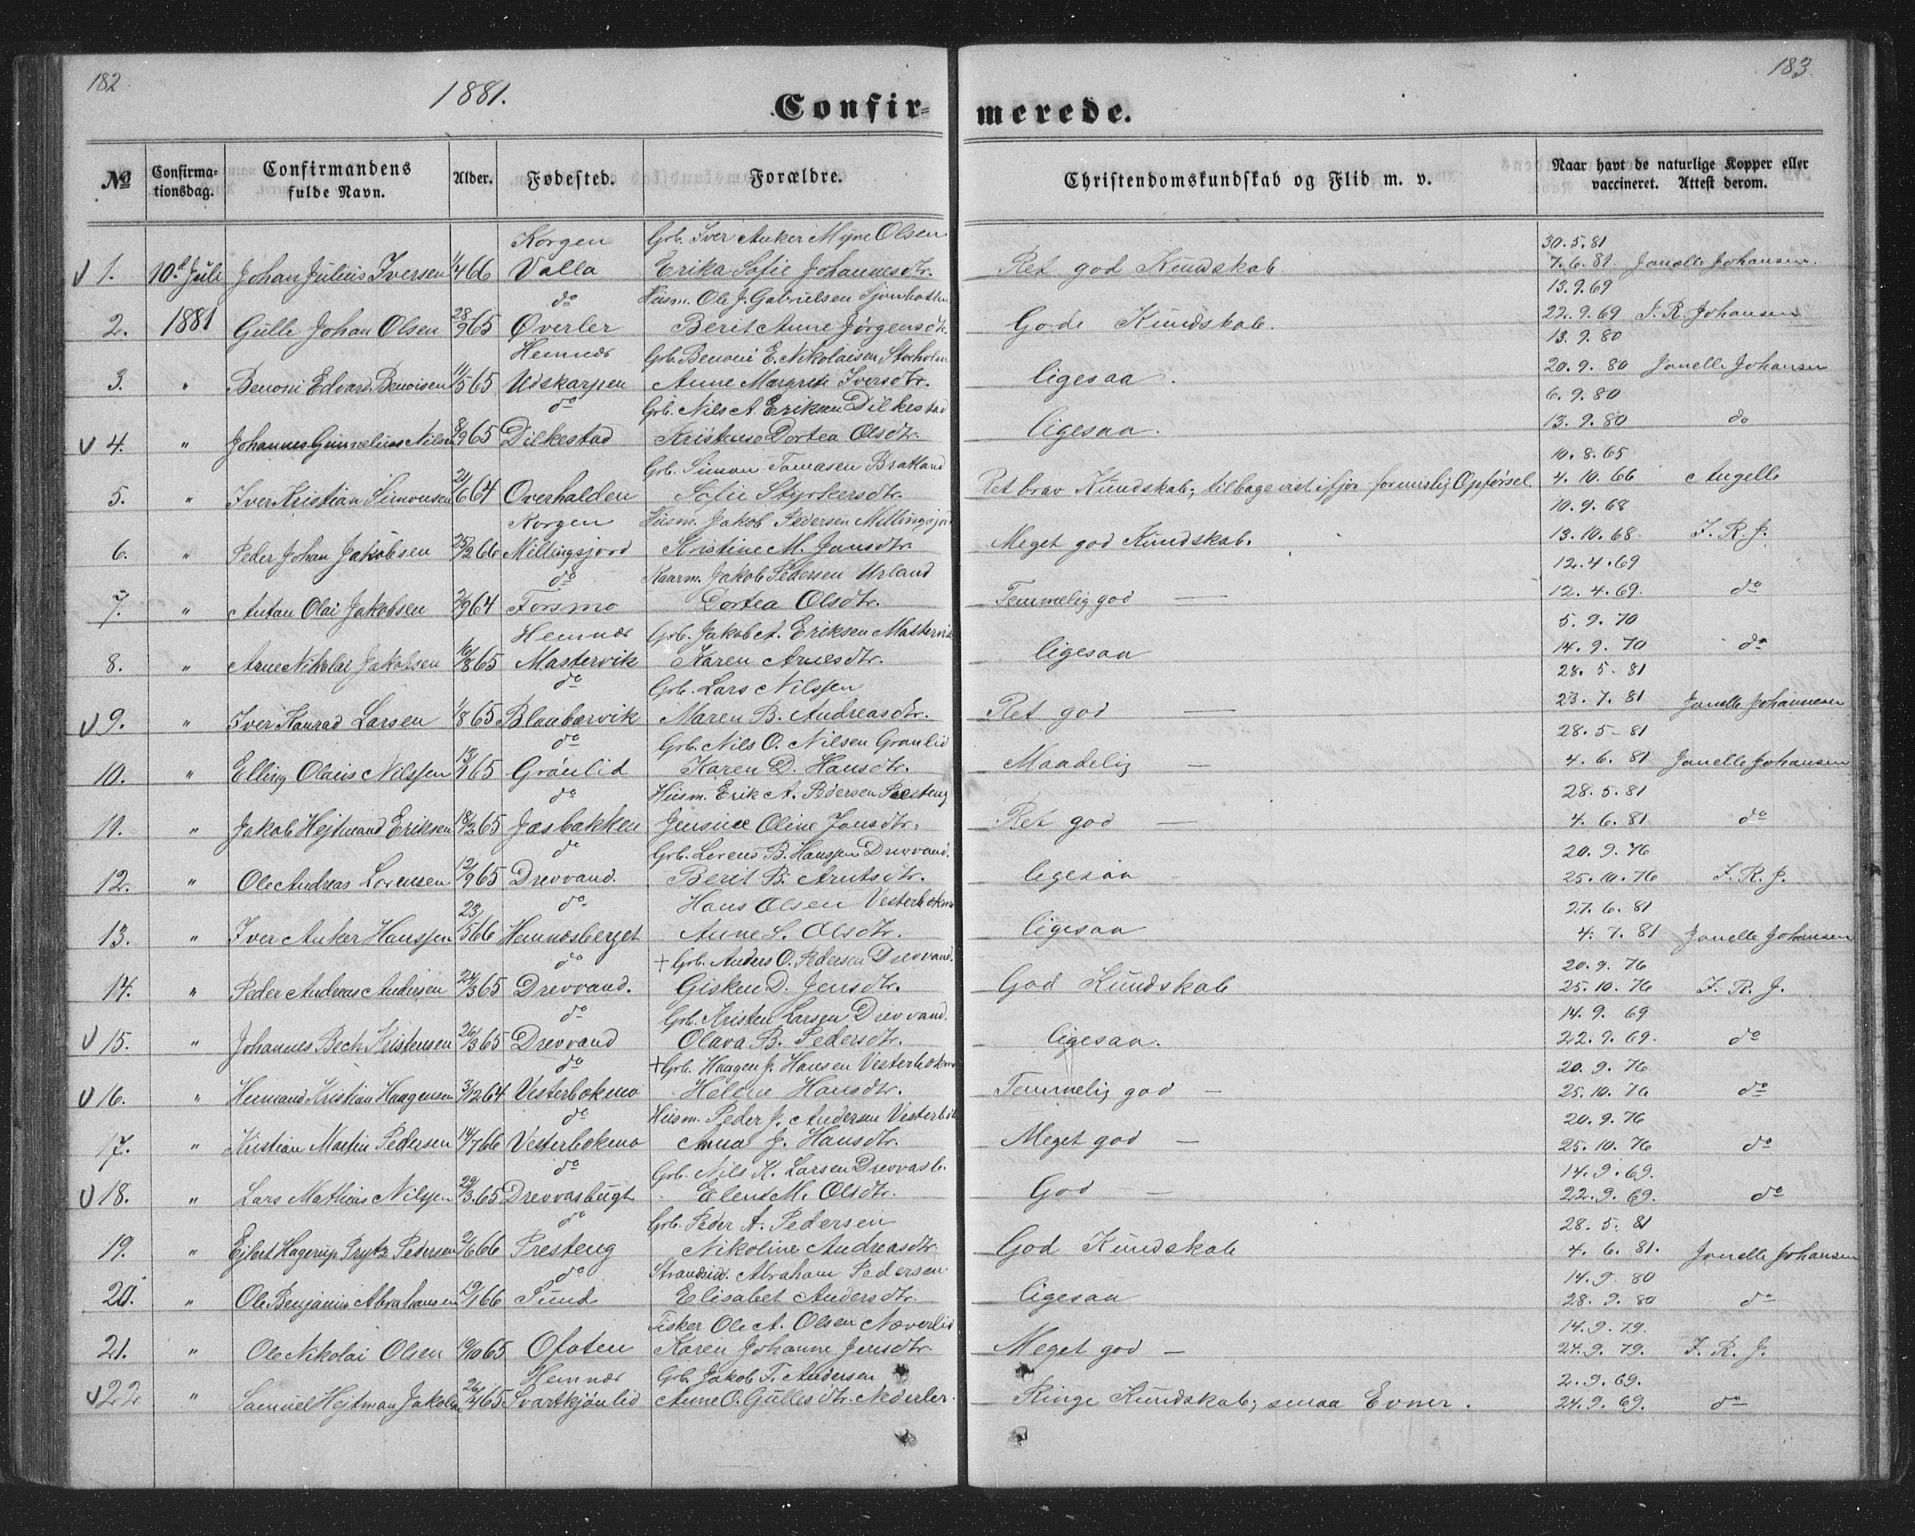 182
1881.
183.
Confir= merede.
No Confirma-tionsdag. Confirmandens fulde Navn. Alder. Fødested. Forældre. Christendomskundskab og Flid m. v. Naar havt de naturlige Kopper eller vaccineret. Attest derom.
Korgen Grb. Iver Anker Olsen 30.5.81
1. 10d Juli Johan Julius Iversen 1/4 66 Valla Erika Sofie Johannesdtr. Ret god Kundskab. 7.6.81 Jonelle Johansen.
do Husm. Ole J. Gabrielsen 13.9.69
2. 1881 Gulle Johan Olsen 28/9 65 Øverler Berit Anne Jørgensdtr. Gode Kundskab. 22.9.69 J. R. Johansen
Hemnæs Grb. Benoni E. Nikolaisen Storholm 13.9.80
3. " Benoni Edvard Benonisen 11/5 65 Udskarpen Anne Margrete Iversdtr. ligesaa. 20.9.80 Jonelle Johansen
do Grb. Nils A. Eriksen Dilkestad 6.9.80
4. " Johannes Nilsen 8/9 65 Dilkestad Dortea Olsdtr. ligesaa. 13.9.80 do
Grb. Simon Tomasen Bratland 10.8.65
5. " Iver Kristian Simonsen 21/6 64 Overhalden Sofie Styrkersdtr. Ret brav Kundskab; tilbagevist ifjor for uærlig Opførsel. 4.10.66 Angell
Korgen Husm. Jakob Pedersen 10.9.68
6. " Peder Johan Jakobsen 25/2 66 Millingsjord Kristine M. Jonsdtr. Meget god Kundskab. 13.10.68. J. R. J.
do Kaarm. Jakob Pedersen Urland 12.4.69
7. " Antan Olai Jakobsen 2/9 64 Forsmo Dortea Olsdtr. Temmelig god — 12.4.69. do
Hemnæs Grb. Jakob A. Eriksen Mastervik 5.9.70
8. " Arne Nikolai Jakobsen 16/8 65 Mastervik Karen Arnesdtr. ligesaa 14.9.70 do
do Grb. Lars Nilssen 28.5.81
9. " Iver Konrad Larsen 1/8 65 Blaubærvik Maren B. Andreasdtr. Ret god — 23.7.81 Jonelle Johannesen
do Grb. Nils O. Nilsen Grønlid 28.5-81
10. " Elling Olaus Nilssen 13/1 65 Grønlid Karen D. Hansdtr. Maadelig — 4.6.81 Jonelle Johansen
do Husm. Erik A. Pedersen 28.5.81
11. " Jakob Hejtmand Eriksen 18/2 65 Jasbakken Jensine Oline Jonsdtr. Ret god — 4.6.81 do
do Grb. Lorens B. Hanssen Drevvand. 20.9.76
12. " Ole Andreas Lorensen 12/9 65 Drevvand. Berit B. Arntsdtr. ligesaa 25.10.76 J. R. J.
do Hans Olsen 27.6.81
13. " Iver Anker Hanssen 23/5 66 Hemnæsberget Anne S. Olsdtr. ligesaa 4.7.81 Jonelle Johansen
do + Grb. Anders O. Pedersen Drevvand. 20.9.76
14. " Peder Andreas Andersen 24/3 65 Drevvand. Gisken D. Jensdtr. God Kundskab 25.10.76 J. R. J.
do Grb. Kristen Larsen Drevvand. 14.9.69
15. " Johannes Bech Kristensen 26/3 65 Drevvand Olava B. Pedersdtr. ligesaa. 22.9.69. do
do + Grb. Haagen J. Hansen Vesterbokmo 20.9.76
16. " Kristian Haagensen 3/12 64 Vesterbokmo Helene Hansdtr. Temmelig god — 25.10.76 do
do Husm. Peder J. Andersen 20.9.76
17. " Kristian Martin Pedersen 14/7 66 Vesterbokmo Anna J. Hansdtr. Meget god — 25.10.76 do
do Grb. Nils K. Larsen Drevvasb. 14.9.69.
18. " Lars Mathias Nilssen 29/3 65 Drevvasbugt Elen M. Olsdtr. God — 22.9.69. do
do Grb. Peder A. Pedersen 28.5.81
19. " Ejlert Hagerup Prytz Pedersen 2/6 66 Presteng Nikoline Andreasdtr. God Kundskab 4.6.81. Jonelle Johansen
do Strandsid. Abraham Pedersen. 14.9.80
20. " Ole Benjamin Abrahamsen 19/1 66 Sund Elisabet Andersdtr. ligesaa 28.9.80 do
Fisker Ole A. Olsen Næverlid 14.9.79.
21. " Ole Nikolai Olsen 9/10 65 Ofoten Karen Johanne Jensdtr. Meget god — 24.9.79. J. R. J.
Hemnæs Grb. Jakob F. Andersen 2.9.69.
22 " Samuel Hejtman Jakobsen 26/4 65 Svartkjønlid Anne O. Gullesdtr. Nederler. Ringe Kundskab; smaa Evner. 24.9.69. do